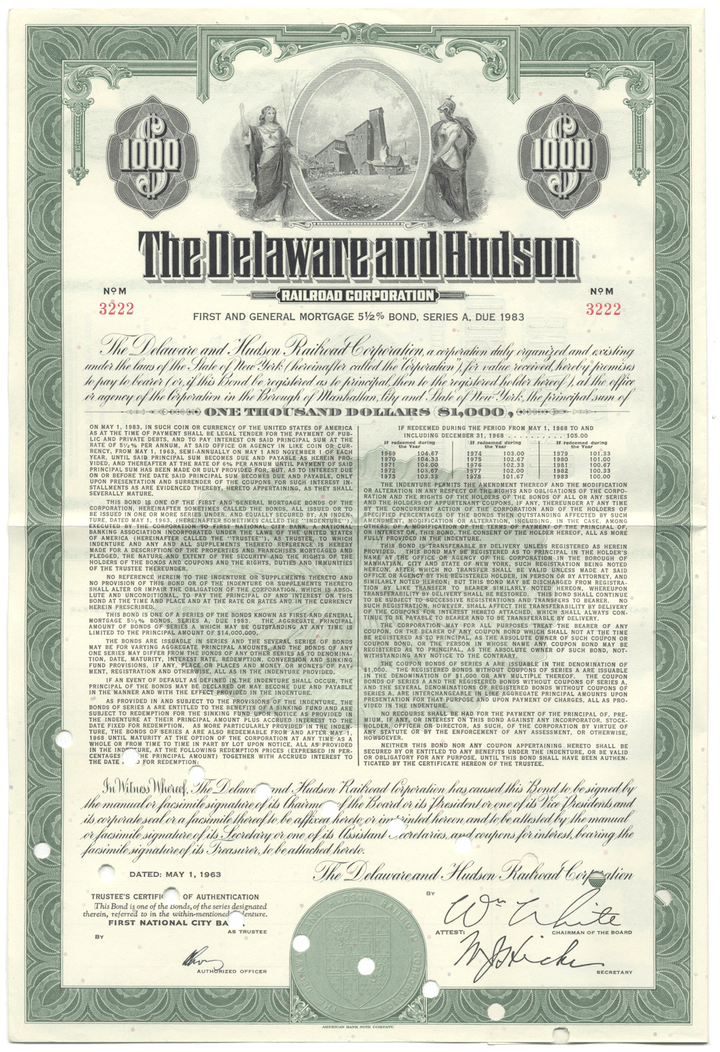 $ 1000
$ 1000
The Delaware and Hudson
RAILROAD CORPORATION
Nº M
3222
Nº M
3222
FIRST AND GENERAL MORTGAGE 5½% BOND, SERIES A, DUE 1983
The Delaware and Hudson Railroad Corporation, a corporation duly organized and existing
under the laws of the State of New York (hereinafter called the Corporation), for value received, hereby promises
to pay to bearer (or, if this Bond be registered as to principal, then to the registered holder hereof), at the office
or agency of the Corporation in the Borough of Manhattan, City and State of New York, the principal sum of
ONE THOUSAND DOLLARS ($1,000),
ON MAY 1, 1983, IN SUCH COIN OR CURRENCY OF THE UNITED STATES OF AMERICA
AS AT THE TIME OF PAYMENT SHALL BE LEGAL TENDER FOR THE PAYMENT OF PUB-
LIC AND PRIVATE DEBTS, AND TO PAY INTEREST ON SAID PRINCIPAL SUM AT THE
RATE OF 5½% PER ANNUM, AT SAID OFFICE OR AGENCY IN LIKE COIN OR CUR-
RENCY, FROM MAY 1, 1963, SEMI-ANNUALLY ON MAY 1 AND NOVEMBER 1 OF EACH
YEAR, UNTIL SAID PRINCIPAL SUM BECOMES DUE AND PAYABLE AS HEREIN PRO-
VIDED, AND THEREAFTER AT THE RATE OF 6% PER ANNUM UNTIL PAYMENT OF SAID
PRINCIPAL SUM HAS BEEN MADE OR DULY PROVIDED FOR, BUT, AS TO INTEREST DUE
ON OR BEFORE THE DATE SAID PRINCIPAL SUM BECOMES DUE AND PAYABLE, ONLY
UPON PRESENTATION AND SURRENDER OF THE COUPONS FOR SUCH INTEREST IN-
STALLMENTS AS ARE EVIDENCED THEREBY, HERETO APPERTAINING, AS THEY SHALL
SEVERALLY MATURE.
THIS BOND IS ONE OF THE FIRST AND GENERAL MORTGAGE BONDS OF THE
CORPORATION, HEREINAFTER SOMETIMES CALLED THE BONDS, ALL ISSUED OR TO
BE ISSUED IN ONE OR MORE SERIES UNDER, AND EQUALLY SECURED BY, AN INDEN-
TURE, DATED MAY 1, 1963, (HEREINAFTER SOMETIMES CALLED THE "INDENTURE"),
EXECUTED BY THE CORPORATION TO FIRST NATIONAL CITY BANK, A NATIONAL
BANKING ASSOCIATION INCORPORATED UNDER THE LAWS OF THE UNITED STATES
OF AMERICA (HEREINAFTER CALLED THE "TRUSTEE"), AS TRUSTEE, TO WHICH
INDENTURE AND ANY AND ALL SUPPLEMENTS THERETO REFERENCE IS HEREBY
MADE FOR A DESCRIPTION OF THE PROPERTIES AND FRANCHISES MORTGAGED AND
PLEDGED, THE NATURE AND EXTENT OF THE SECURITY AND THE RIGHTS OF THE
HOLDERS OF THE BONDS AND COUPONS AND THE RIGHTS, DUTIES AND IMMUNITIES
OF THE TRUSTEE THEREUNDER.
NO REFERENCE HEREIN TO THE INDENTURE OR SUPPLEMENTS THERETO AND
NO PROVISION OF THIS BOND OR OF THE INDENTURE OR SUPPLEMENTS THERETO
SHALL ALTER OR IMPAIR THE OBLIGATION OF THE CORPORATION, WHICH IS ABSO-
LUTE AND UNCONDITIONAL, TO PAY THE PRINCIPAL OF AND INTEREST ON THIS
BOND AT THE TIME AND PLACE AND AT THE RATE OR RATES AND IN THE CURRENCY
HEREIN PRESCRIBED.
THIS BOND IS ONE OF A SERIES OF THE BONDS KNOWN AS FIRST AND GENERAL
MORTGAGE 5½% BONDS, SERIES A, DUE 1983. THE AGGREGATE PRINCIPAL
AMOUNT OF BONDS OF SERIES A WHICH MAY BE OUTSTANDING AT ANY TIME IS
LIMITED TO THE PRINCIPAL AMOUNT OF $14,000,000.
THE BONDS ARE ISSUABLE IN SERIES AND THE SEVERAL SERIES OF BONDS
MAY BE FOR VARYING AGGREGATE PRINCIPAL AMOUNTS, AND THE BONDS OF ANY
ONE SERIES MAY DIFFER FROM THE BONDS OF ANY OTHER SERIES AS TO DENOMINA-
TION, DATE, MATURITY, INTEREST RATE, REDEMPTION, CONVERSION AND SINKING
FUND PROVISIONS, IF ANY, PLACE OR PLACES AND MONEY OR MONEYS OF PAY-
MENT, REGISTRATION AND OTHERWISE, ALL AS IN THE INDENTURE PROVIDED.
IF AN EVENT OF DEFAULT AS DEFINED IN THE INDENTURE SHALL OCCUR, THE
PRINCIPAL OF THE BONDS MAY BE DECLARED OR MAY BECOME DUE AND PAYABLE
IN THE MANNER AND WITH THE EFFECT PROVIDED IN THE INDENTURE.
AS PROVIDED IN AND SUBJECT TO THE PROVISIONS OF THE INDENTURE, THE
BONDS OF SERIES A ARE ENTITLED TO THE BENEFITS OF A SINKING FUND AND ARE
SUBJECT TO REDEMPTION FOR THE SINKING FUND UPON NOTICE AS PROVIDED IN
THE INDENTURE AT THEIR PRINCIPAL AMOUNT PLUS ACCRUED INTEREST TO THE
DATE FIXED FOR REDEMPTION. AS MORE PARTICULARLY PROVIDED IN THE INDEN-
TURE, THE BONDS OF SERIES A ARE ALSO REDEEMABLE FROM AND AFTER MAY 1,
1968 UNTIL MATURITY AT THE OPTION OF THE CORPORATION AT ANY TIME AS A
WHOLE OR FROM TIME TO TIME IN PART BY LOT UPON NOTICE, ALL AS PROVIDED
IN THE INDENTURE, AT THE FOLLOWING REDEMPTION PRICES (EXPRESSED IN PER-
CENTAGES THE PRINCIPAL AMOUNT) TOGETHER WITH ACCRUED INTEREST TO
THE DATE FOR REDEMPTION:
IF REDEEMED DURING THE PERIOD FROM MAY 1, 1968 TO AND
INCLUDING DECEMBER 31, 1968 . . . . . . . . . . 105.00
If redeemed during the Year If redeemed during the Year If redeemed during the Year
1969 104.67 1974 103.00 1979 101.33
1970 104.33 1975 102.67 1980 101.00
1971 104.00 1976 102.33 1981 100.67
1972 103.67 1977 102.00 1982 100.33
1973 103.33 1978 101.67 1983 100.00
THE INDENTURE PERMITS THE AMENDMENT THEREOF AND THE MODIFICATION
OR ALTERATION IN ANY RESPECT OF THE RIGHTS AND OBLIGATIONS OF THE CORPO-
RATION AND THE RIGHTS OF THE HOLDERS OF THE BONDS OF ALL OR ANY SERIES
AND THE HOLDERS OF APPURTENANT COUPONS, IF ANY, THEREUNDER AT ANY TIME
BY THE CONCURRENT ACTION OF THE CORPORATION AND OF THE HOLDERS OF
SPECIFIED PERCENTAGES OF THE BONDS THEN OUTSTANDING AFFECTED BY SUCH
AMENDMENT, MODIFICATION OR ALTERATION, INCLUDING, IN THE CASE, AMONG
OTHERS, OF A MODIFICATION OF THE TERMS OF PAYMENT OF THE PRINCIPAL OF,
OR INTEREST ON, THIS BOND, THE CONSENT OF THE HOLDER HEREOF, ALL AS MORE
FULLY PROVIDED IN THE INDENTURE.
THIS BOND IS TRANSFERABLE BY DELIVERY UNLESS REGISTERED AS HEREIN
PROVIDED. THIS BOND MAY BE REGISTERED AS TO PRINCIPAL IN THE HOLDER'S
NAME AT THE OFFICE OR AGENCY OF THE CORPORATION IN THE BOROUGH OF
MANHATTAN, CITY AND STATE OF NEW YORK, SUCH REGISTRATION BEING NOTED
HEREON, AFTER WHICH NO TRANSFER SHALL BE VALID UNLESS MADE AT SAID
OFFICE OR AGENCY BY THE REGISTERED HOLDER, IN PERSON OR BY ATTORNEY, AND
SIMILARLY NOTED HEREON; BUT THIS BOND MAY BE DISCHARGED FROM REGISTRA-
TION BY LIKE TRANSFER TO BEARER SIMILARLY NOTED HEREON, WHEREUPON
TRANSFERABILITY BY DELIVERY SHALL BE RESTORED. THIS BOND SHALL CONTINUE
TO BE SUBJECT TO SUCCESSIVE REGISTRATIONS AND TRANSFERS TO BEARER. NO
SUCH REGISTRATION, HOWEVER, SHALL AFFECT THE TRANSFERABILITY BY DELIVERY
OF THE COUPONS FOR INTEREST HERETO ATTACHED, WHICH SHALL ALWAYS CON-
TINUE TO BE PAYABLE TO BEARER AND TO BE TRANSFERABLE BY DELIVERY.
THE CORPORATION MAY FOR ALL PURPOSES TREAT THE BEARER OF ANY
COUPON, OR THE BEARER OF ANY COUPON BOND WHICH SHALL NOT AT THE TIME
BE REGISTERED AS TO PRINCIPAL, AS THE ABSOLUTE OWNER OF SUCH COUPON OR
COUPON BOND, OR THE PERSON IN WHOSE NAME ANY COUPON BOND MAY BE
REGISTERED AS TO PRINCIPAL, AS THE ABSOLUTE OWNER OF SUCH BOND, NOT-
WITHSTANDING ANY NOTICE TO THE CONTRARY.
THE COUPON BONDS OF SERIES A ARE ISSUABLE IN THE DENOMINATION OF
$1,000. THE REGISTERED BONDS WITHOUT COUPONS OF SERIES A ARE ISSUABLE
IN THE DENOMINATION OF $1,000 OR ANY MULTIPLE THEREOF. THE COUPON
BONDS OF SERIES A AND THE REGISTERED BONDS WITHOUT COUPONS OF SERIES A,
AND THE SEVERAL DENOMINATIONS OF REGISTERED BONDS WITHOUT COUPONS OF
SERIES A, ARE INTERCHANGEABLE IN LIKE AGGREGATE PRINCIPAL AMOUNTS UPON
PRESENTATION FOR THAT PURPOSE AND UPON PAYMENT OF CHARGES, ALL AS PRO-
VIDED IN THE INDENTURE.
NO RECOURSE SHALL BE HAD FOR THE PAYMENT OF THE PRINCIPAL OF, PRE-
MIUM, IF ANY, OR INTEREST ON THIS BOND AGAINST ANY INCORPORATOR, STOCK-
HOLDER, OFFICER OR DIRECTOR, AS SUCH, OF THE CORPORATION BY VIRTUE OF
ANY STATUTE OR BY THE ENFORCEMENT OF ANY ASSESSMENT, OR OTHERWISE,
HOWSOEVER.
NEITHER THIS BOND NOR ANY COUPON APPERTAINING HERETO SHALL BE
SECURED BY OR ENTITLED TO ANY BENEFITS UNDER THE INDENTURE, OR BE VALID
OR OBLIGATORY FOR ANY PURPOSE, UNTIL THIS BOND SHALL HAVE BEEN AUTHEN-
TICATED BY THE CERTIFICATE HEREON OF THE TRUSTEE.
In Witness Whereof, The Delaware and Hudson Railroad Corporation has caused this Bond to be signed by
the manual or facsimile signature of its Chairman of the Board or its President or one of its Vice Presidents and
its corporate seal or a facsimile thereof to be affixed hereto or imprinted hereon and to be attested by the manual
or facsimile signature of its Secretary or one of its Assistant Secretaries, and coupons for interest, bearing the
facsimile signature of its Treasurer, to be attached hereto.
DATED: MAY 1, 1963
The Delaware and Hudson Railroad Corporation
TRUSTEE'S CERTIFICATE OF AUTHENTICATION
This Bond is one of the Bonds, of the series designated
therein, referred to in the within-mentioned Indenture.
FIRST NATIONAL CITY BANK,
AS TRUSTEE
BY
AUTHORIZED OFFICER
BY
Wm White
ATTEST:
CHAIRMAN OF THE BOARD
SECRETARY
AMERICAN BANK NOTE COMPANY